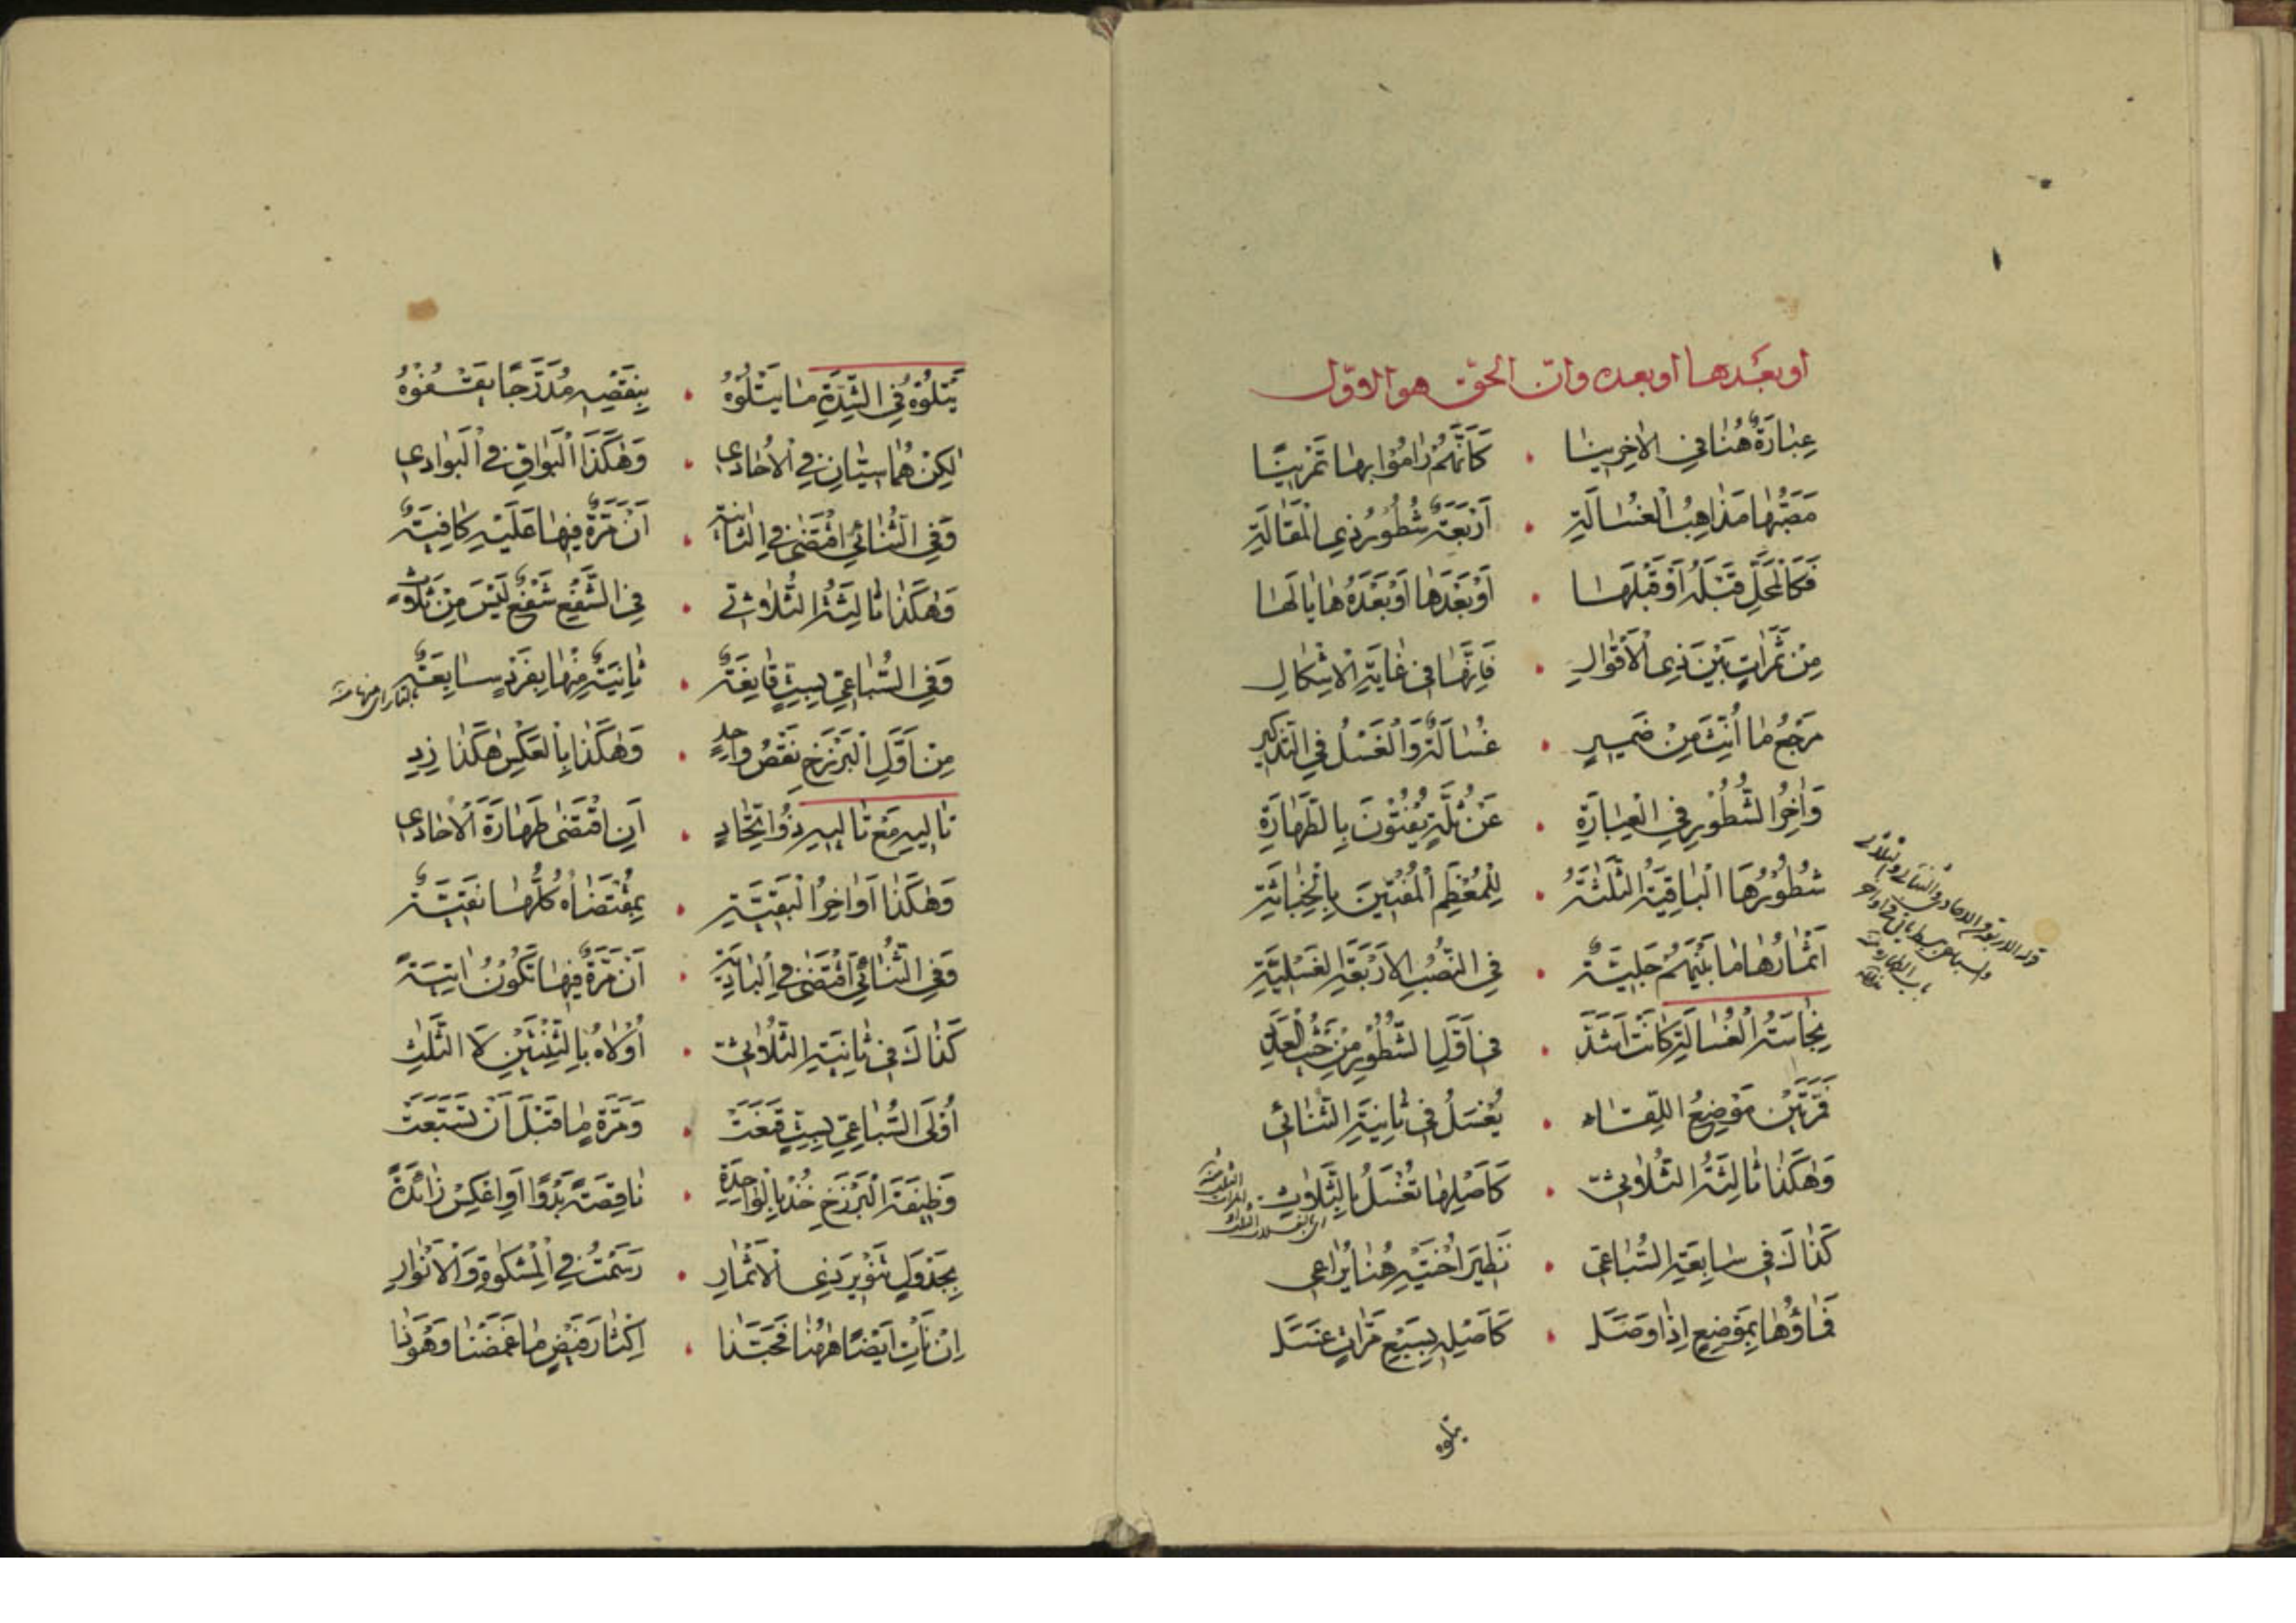 او بعدها او بعده وان الحق هو الاوّل
عِبَارَةٌ هُنَا فِي الاٰخِرِينَا . كَأَنَّهُمْ رَامُوا بِهَا تَمْرِينًا
مَصَبُّهَا مَذَاهِبُ الْغُسَالَةِ . أَرْبَعَةٌ شُطُورُ ذِي الْمَقَالَةِ
فَكَالْمَحَلِّ قَبْلَهُ أَوْ قَبْلَهَا . أَوْ بَعْدَهَا أَوْ بَعْدَهُ هَا يَا لَهَا
مِنْ ثَمَرَاتٍ بَيْنَ ذِي الْأَقْوَالِ . فَإِنَّهَا فِي غَايَةِ الْإِشْكَالِ
مَرْجِعُ مَا أُنِّثَ مِنْ ضَمِيرٍ . غُسَالَةٌ وَالْغَسْلُ فِي التَّذْكِيرِ
وَاٰخِرُ الشُّطُورِ فِي الْعِبَارَةِ . عَنْ ثُلَّةٍ يُفْتُونَ بِالطَّهَارَةِ
شُطُورُهَا الْبَاقِيَةُ الثَّلٰثَةُ . لِلْمُعْظَمِ الْمُفْتِينَ بِالْخَبَاثَةِ
أَثْمَارُهَا مَا بَيْنَهُمْ جَلِيَّةٌ . فِي النُّصُبِ الْأَرْبَعَةِ الْغَسْلِيَّةِ
نِجَاسَةُ الْغُسَالَةِ كَانَتْ أَشَدَّ . فِي أَوَّلِ الشُّطُورِ مِنْ حَيْثُ الْعَدَدِ
فَمَرَّتَيْنِ مَوْضِعُ اللِّقَاءِ . يُغْسَلُ فِي ثَانِيَةِ الثُّنَائِي
وَهٰكَذَا ثَالِثَةُ الثُّلَاثِيِّ . كَأَصْلِهَا تُغْسَلُ بِالثَّلَاثِ
كَذَاكَ فِي سَابِعَةِ السُّبَاعِي . نَظِيرَ أُخْتَيْهِ هُنَا يُرَاعِي
فَمَاؤُهَا بِمَوْضِعٍ إِذَا وَصَلَ . كَأَصْلِهِ بِسَبْعِ مَرَّاتٍ غَسَلَ
يتلوه
يَتْلُوهُ فِي الشِّدَّةِ مَا يَتْلُوهُ . بِنَقْصِهِ مُدَرَّجًا يَقْفُوهُ
لٰكِنْ هُمَا سِيَّانِ فِي الْأُحَادِي . وَهٰكَذَا الْبَوَاقِي فِي الْبَوَادِي
وَفِي الثُّنَائِي اقْتَضٰى فِي الثَّانِيَةِ . أَنْ مَرَّةٌ فِيهَا عَلَيْهِ كَافِيَةٌ
وَهٰكَذَا ثَالِثَةُ الثُّلَاثِي . فِي الشَّفْعِ شَفْعٌ لَيْسَ مِنْ ثَلَاثِ
وَفِي السُّبَاعِيِّ بِسِتٍّ قَانِعَةٌ . ثَانِيَةٌ مِنْهَا بِفَرْدٍ سَابِعَةٌ
مِنْ أَوَّلِ الْبَرْزَخِ نَقْصُ وَاحِدٍ . وَهٰكَذَا بِالْعَكْسِ هٰكَذَا زِدِ
تَالِيهِ مَعْ تَالِيهِ ذُو اتِّحَادٍ . أَنِ اقْتَضٰى طَهَارَةَ الْأُحَادِي
وَهٰكَذَا أَوَاخِرُ الْبَقِيَّةِ . بِمُقْتَضَاهُ كُلُّهَا نَقِيَّةٌ
وَفِي الثُّنَائِي اقْتَضٰى فِي الْبَادِيَةِ . أَنْ مَرَّةٌ فِيهَا تَكُونُ اٰتِيَةً
كَذَاكَ فِي ثَانِيَةِ الثُّلَاثِي . أُولَاهُ بِالثِّنْتَيْنِ لَا الثَّلٰثِ
أُولَى السُّبَاعِيِّ بِسِتٍّ قَنَعَتْ . وَمَرَّةٍ مَا قَبْلَ أَنْ تَسَبَّعَتْ
وَظِيفَةَ الْبَرْزَخِ خُذْ بِالْوَاحِدَةِ . نَاقِصَةً بَدْوًا أَوِ اعْكِسْ زَائِدَةً
بِجَدْوَلٍ تَنْوِيرَ ذِي الْأَثْمَارِ . رَسَمْتُ فِي الْمِشْكٰوةِ وَالْأَنْوَارِ
إِنْ نَأْتِ أَيْضًا هٰهُنَا فَحَبَّذَا . إِكْثَارَ فَيْضٍ مَا غَمَضْنَا وَهْوَنَا